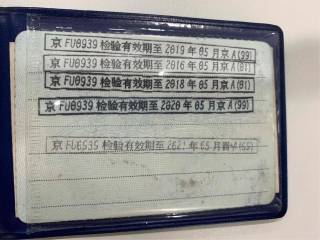 京 FU0939 检验有效期至 2019 年 05 月京 A(99)
京 FU0939 检验有效期至 2016 年 05 月京 A(01)
京 FU0939 检验有效期至 2018 年 05 月京 A(01)
京 FU0939 检验有效期至 2020 年 05 月京 A(99)
京 检验有效期至 2021 年 05 月